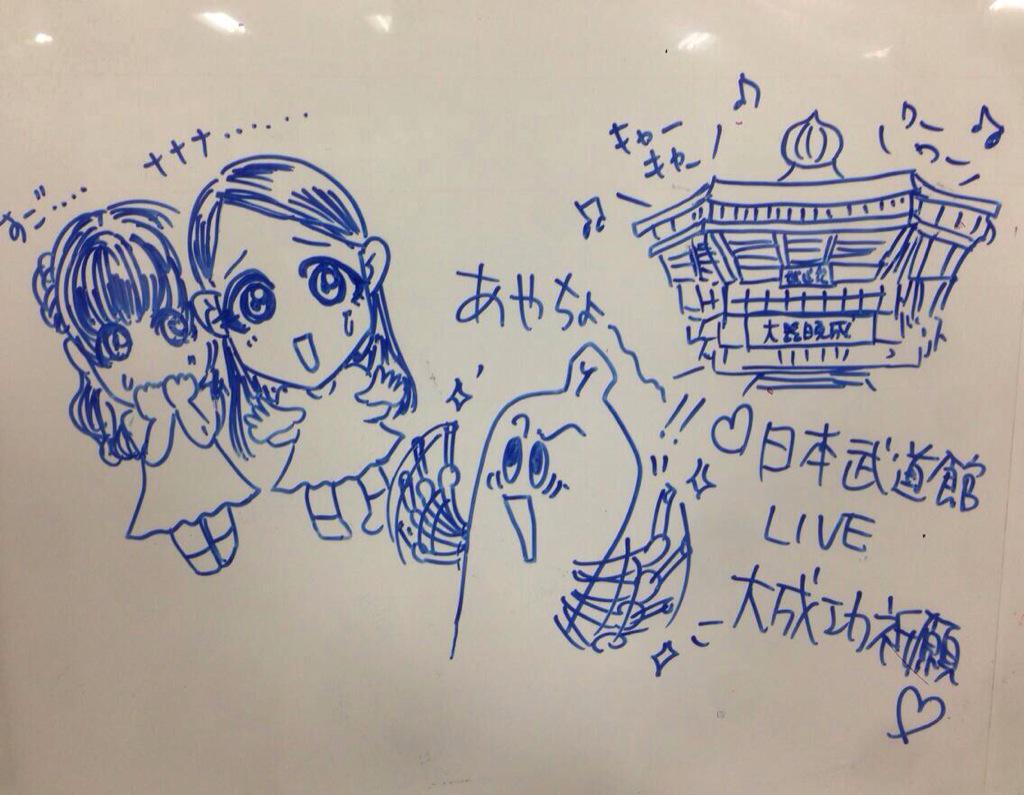 すご……
ナナナ……
キャー
キャー
ワー
ワー
あやちょ
!!
大器晩成
日本武道館
LIVE
大成功祈願